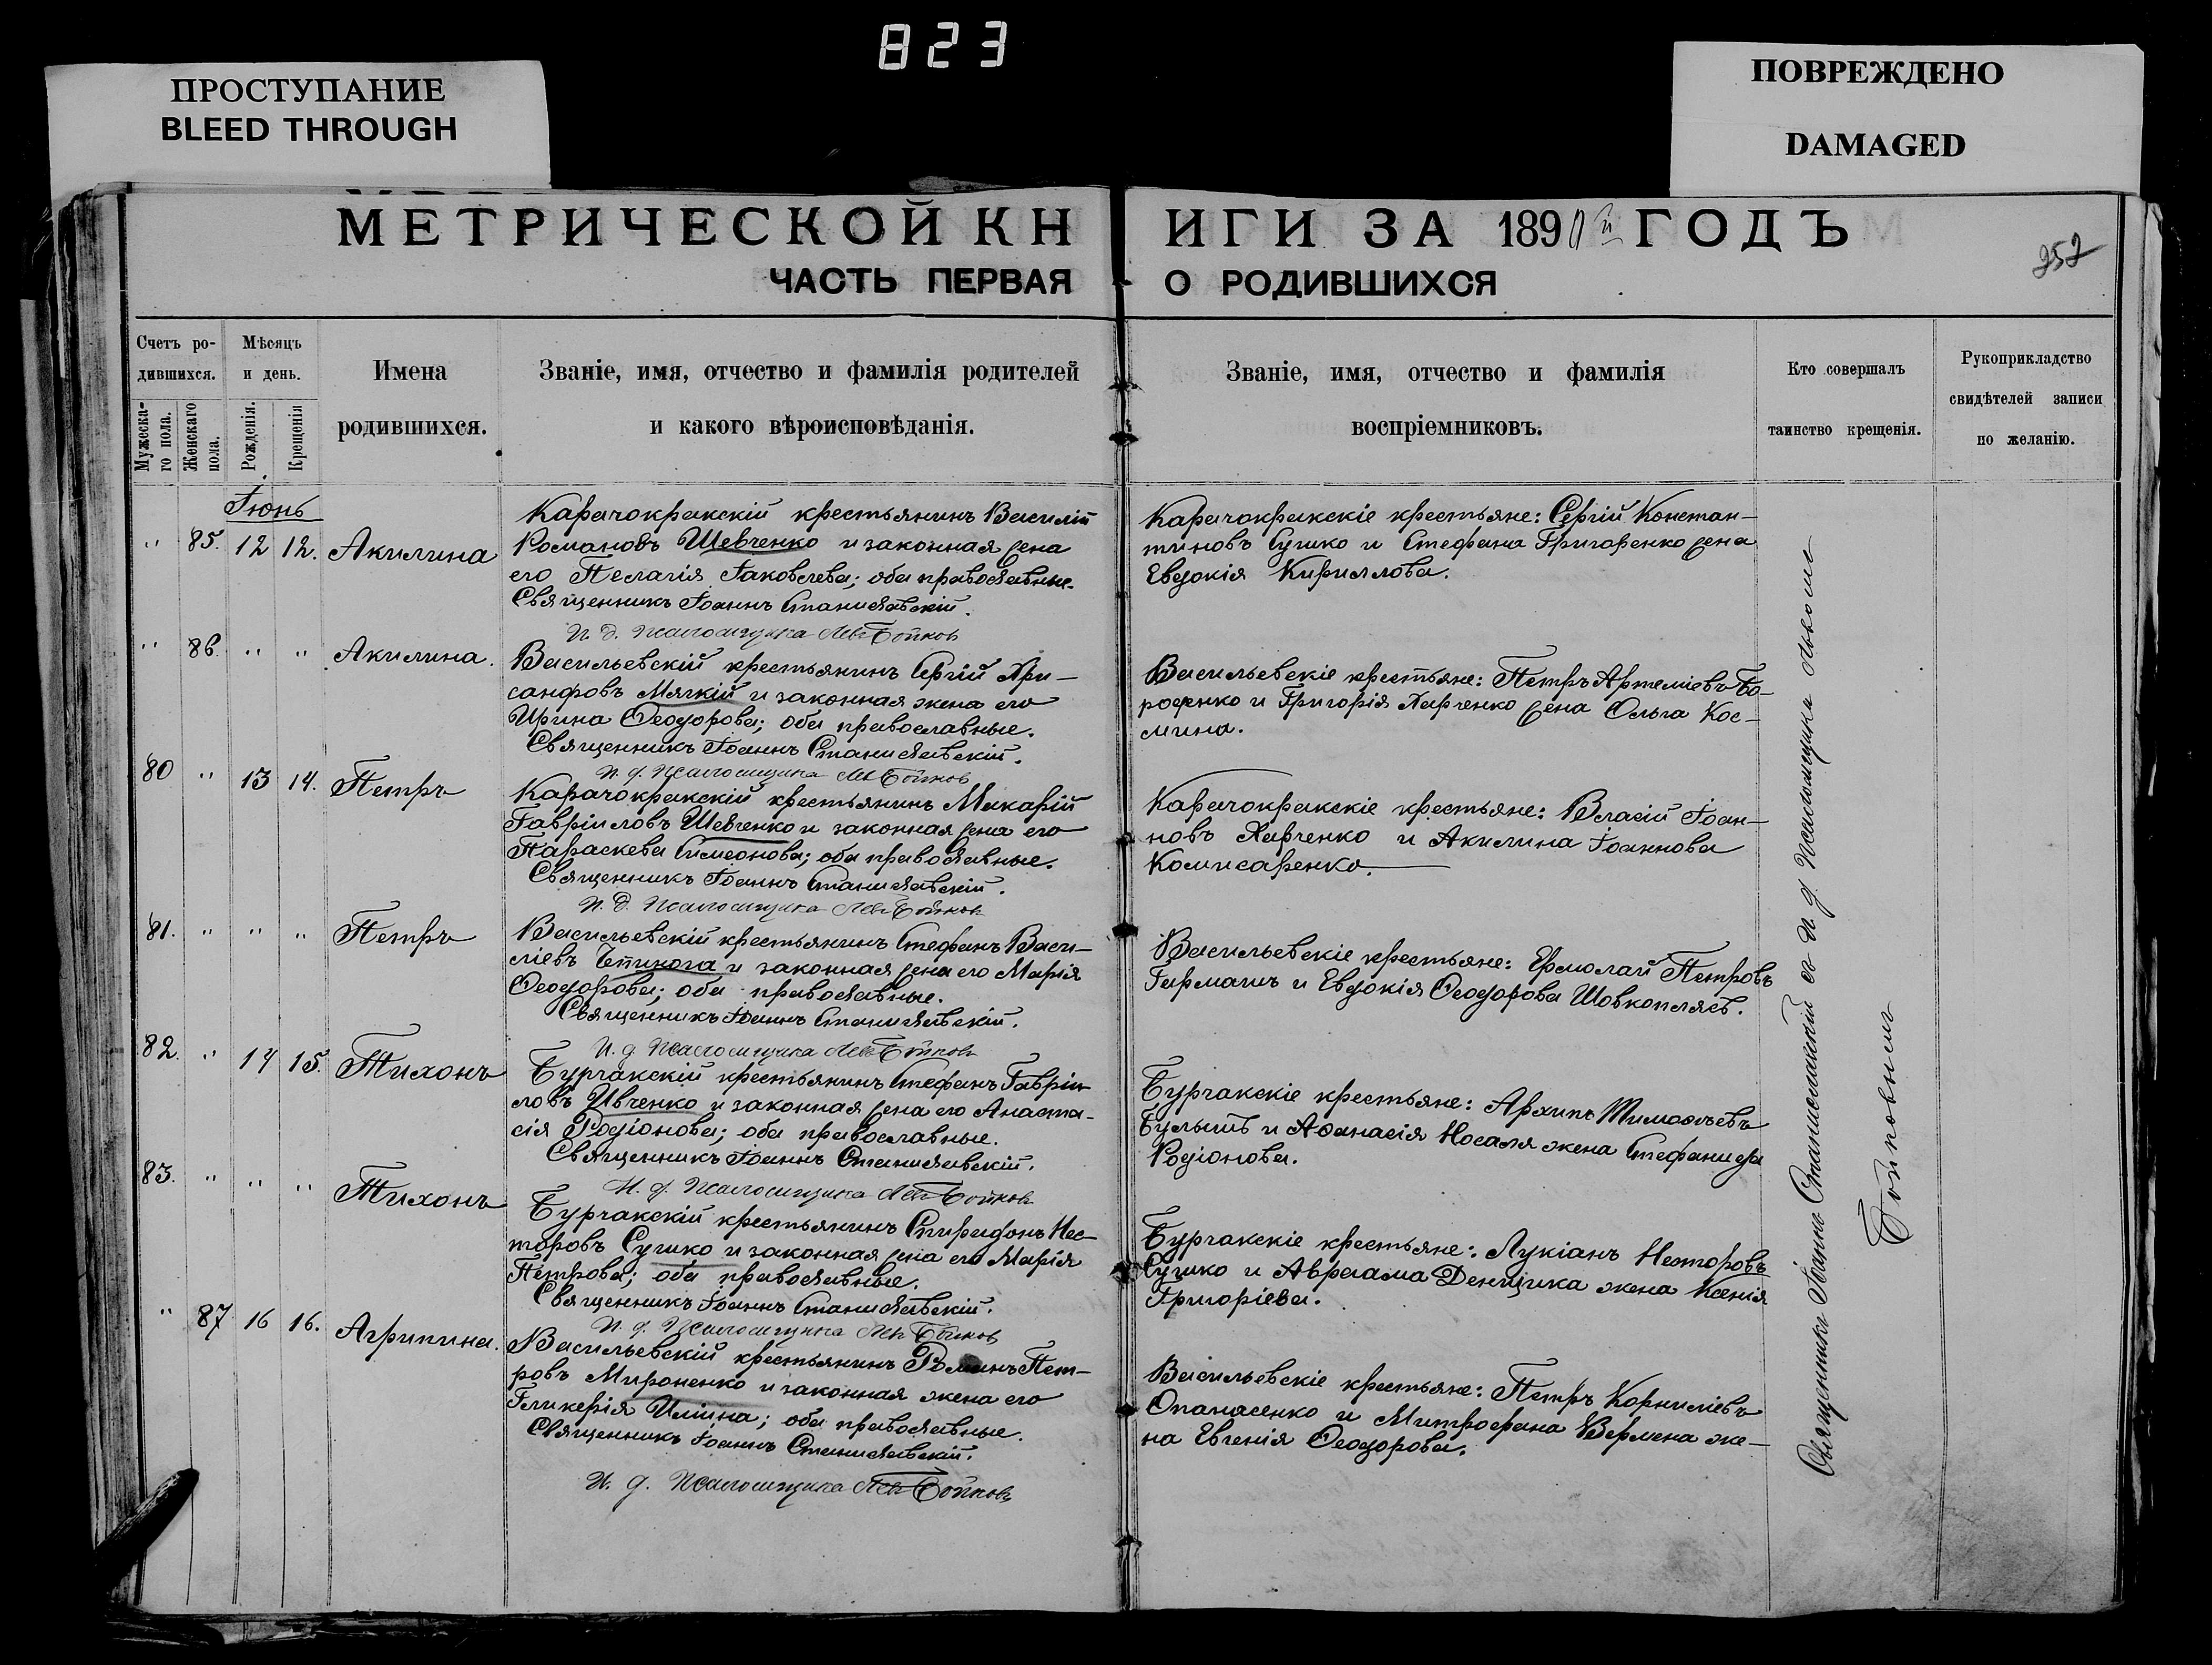 823
ПРОСТУПАНИЕ
BLEED THROUGH
ПОВРЕЖДЕНО
DAMAGED
МЕТРИЧЕСКОЙ КНИГИ ЗА 189 ГОДЪ
252
ЧАСТЬ ПЕРВАЯ О РОДИВШИХСЯ
Счетъ ро-
дившихся.
Мужеска-
го пола.
Женскаго
пола.
Мѣсяцъ
и день.
Рожденія.
Крещенія
Имена
родившихся.
Званіе, имя, отчество и фамилія родителей
и какого вѣроисповѣданія.
Званіе, имя, отчество и фамилія
воспріемниковъ.
Кто совершалъ
таинство крещенія.
Рукоприкладство
свидѣтелей записи
по желанію.
Іюнь
" 85. 12 12. Акилина
Карачокракскій крестьянинъ Василій
Романовъ Шевченко и законная жена
его Пелагія Іаковлева; оба православные.
Священникъ Іоаннъ Станиславскій.
И. д. Псаломщика Левъ Бойковъ
Карачокракскіе крестьяне: Сергій Констан-
тиновъ Сушко и Стефана Григоренко жена
Евдокія Кириллова.
" 86. " " Акилина.
Васильевскій крестьянинъ Сергій Хри-
санфовъ Мягкій и законная жена его
Ирина Ѳеодорова; оба православные.
Священникъ Іоаннъ Станиславскій.
И. д. Псаломщика Левъ Бойковъ
Васильевскіе крестьяне: Петръ Артеміевъ
и Григорія Харченко жена Ольга Кос-
мина.
80 " 13 14. Петръ
Карачокракскій крестьянинъ Макарій
Гавріиловъ Шевченко и законная жена его
Параскева Симеонова; оба православные.
Священникъ Іоаннъ Станиславскій.
И. д. Псаломщика Левъ Бойковъ
Карачокракскіе крестьяне: Власій Іоан-
новъ Харченко и Акилина Іоаннова
Комисаренко.
81. " " " Петръ
Васильевскій крестьянинъ Стефанъ Васи-
ліевъ и законная жена его Марія
Ѳеодорова; оба православные.
Священникъ Іоаннъ Станиславскій.
И. д. Псаломщика Левъ Бойковъ
Васильевскіе крестьяне: Ермолай Петровъ
Гармашъ и Евдокія Ѳеодорова Шовкоплясъ.
82. " 14 15. Тихонъ
Бурчакскій крестьянинъ Стефанъ Гавріи-
ловъ Ивченко и законная жена его Анаста-
сія Родіонова; оба православные.
Священникъ Іоаннъ Станиславскій.
И. д. Псаломщика Левъ Бойковъ
Бурчакскіе крестьяне: Архипъ Тимоѳеевъ
и Аѳанасія Носаля жена Стефанида
Родіонова.
83. " " " Тихонъ
Бурчакскій крестьянинъ Спиридонъ Нес-
торовъ Сушко и законная жена его Марія
Петрова; оба православные.
Священникъ Іоаннъ Станиславскій.
И. д. Псаломщика Левъ Бойковъ
Бурчакскіе крестьяне: Лукіанъ Несторовъ
Сушко и Авраама Денщика жена Ксенія
Григоріева.
" 87 16 16. Агрипина.
Васильевскій крестьянинъ Романъ Пет-
ровъ Мироненко и законная жена его
Гликерія Иліина; оба православные.
Священникъ Іоаннъ Станиславскій.
И. д. Псаломщика Левъ Бойковъ
Васильевскіе крестьяне: Петръ Корниліевъ
Опанасенко и Митрофана Вермена же-
на Евгенія Ѳеодорова.
Священникъ Іоаннъ Станиславскій съ И. д. Псаломщика Львомъ
Бойковымъ